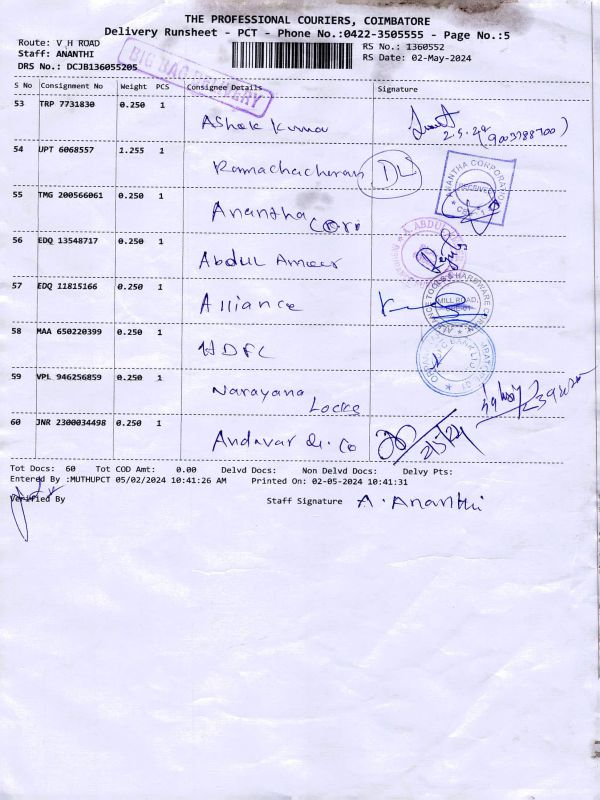 THE PROFESSIONAL COURIERS, COIMBATORE
Delivery Runsheet - PCT - Phone No.:0422-3505555 - Page No.:5
Route: V H ROAD
RS No.: 1360552
Staff: ANANTHI
RS Date: 02-May-2024
DRS No.: DCJB136055205
BIG BAG DELIVERY
S No Consignment No Weight PCS Consignee Details Signature
53 TRP 7731830 0.250 1 Ashok Kumar
2.5.24
54 UPT 6068557 1.255 1 Ramachandran DL
ANANTHA CORPORATION
RECEIVED
55 TMG 200566061 0.250 1 Anantha Corp
56 EDQ 13548717 0.250 1 Abdul Ameer
57 EDQ 11815166 0.250 1 Alliance
TOOLS & HARDWARE
MILL ROAD
58 MAA 650220399 0.250 1 HDFC
HDFC BANK LTD
59 VPL 946256859 0.250 1 Narayana
Locks
60 JNR 2300034498 0.250 1 Andavar & Co
2/5/24
Tot Docs: 60 Tot COD Amt: 0.00 Delvd Docs: Non Delvd Docs: Delvy Pts:
Entered By :MUTHUPCT 05/02/2024 10:41:26 AM Printed On: 02-05-2024 10:41:31
Verified By Staff Signature A. Ananthi